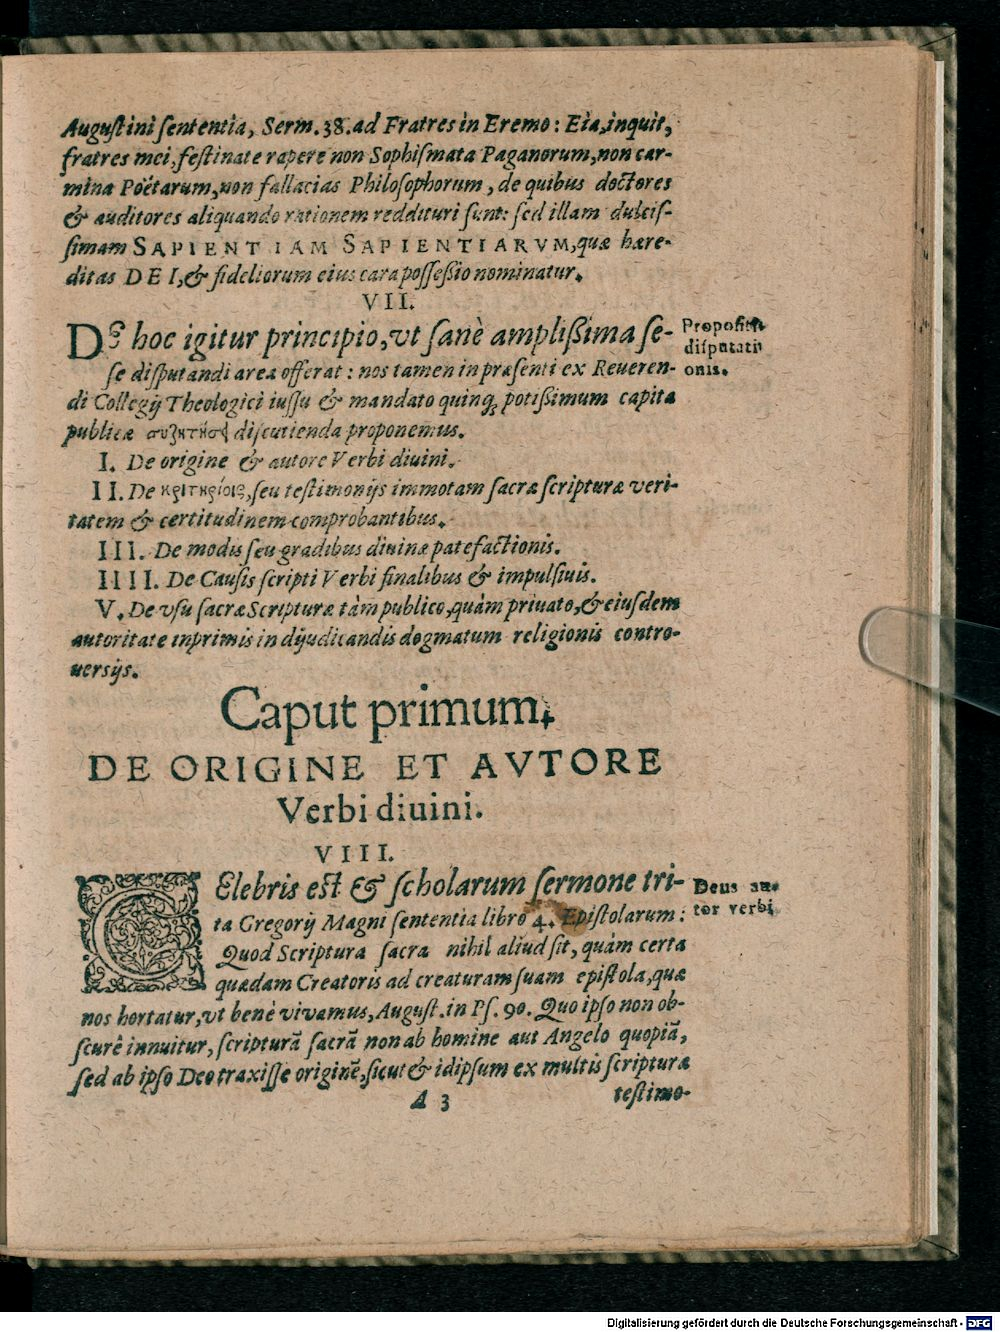 Augustini sententia, Serm. 38. ad Fratres in Eremo: Eia, inquit,
fratres mei, festinate rapere non Sophismata Paganorum, non car-
mina Poëtarum, non fallacias Philosophorum, de quibus doctores
& auditores aliquando rationem reddituri sunt: sed illam dulcis-
simam SAPIENTIAM SAPIENTIARVM, quæ hære-
ditas DEI, & fideliorum eius cara possessio nominatur.
VII.
De hoc igitur principio, vt sanè amplissima se-
Propositio
se disputandi area offerat: nos tamen in præsenti ex Reueren-
disputati-
onis.
di Collegij Theologici iussu & mandato quinq; potissimum capita
publicæ discutienda proponemus.
I. De origine & autore Verbi diuini.
II. De κριτηρίοις, seu testimonijs immotam sacræ scripturæ veri-
tatem & certitudinem comprobantibus.
III. De modis seu gradibus diuinæ patefactionis.
IIII. De Causis scripti Verbi finalibus & impulsiuis.
V. De vsu sacræ Scripturæ tàm publico, quàm priuato, & eiusdem
autoritate inprimis in dijudicandis dogmatum religionis contro-
uersijs.
Caput primum.
DE ORIGINE ET AVTORE
Verbi diuini.
VIII.
CElebris est & scholarum sermone tri-
Deus au-
tor verbi
ta Gregorij Magni sententia libro 4. Epistolarum:
Quod Scriptura sacra nihil aliud sit, quàm certa
quædam Creatoris ad creaturam suam epistola, quæ
nos hortatur, vt benè vivamus, August. in Ps. 90. Quo ipso non ob-
scurè innuitur, scripturã sacrã non ab homine aut Angelo quopiã,
sed ab ipso Deo traxisse originẽ, sicut & idipsum ex multis scripturæ
A 3
testimo-